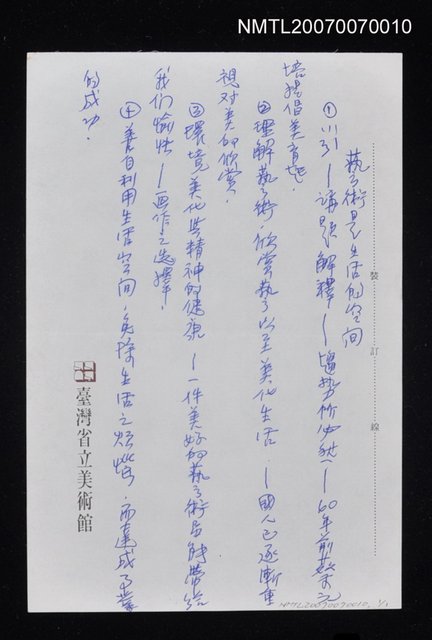 NMTL20070070010
藝術是生活的空間
①川引—講題解釋—趨勢所必然—60年前蔡元
培提倡美育。
②理解藝術,欣賞藝術以至美化生活.—國人已逐漸重
視对美的欣賞.
③環境美化与精神的健康—一件美好的藝術品能帶給
我们愉快—画作之選擇.
④善自利用生活空间,免除生活之煩惱.而達成事業
的成功.
裝 訂 線
臺灣省立美術館
NMTL20070070010